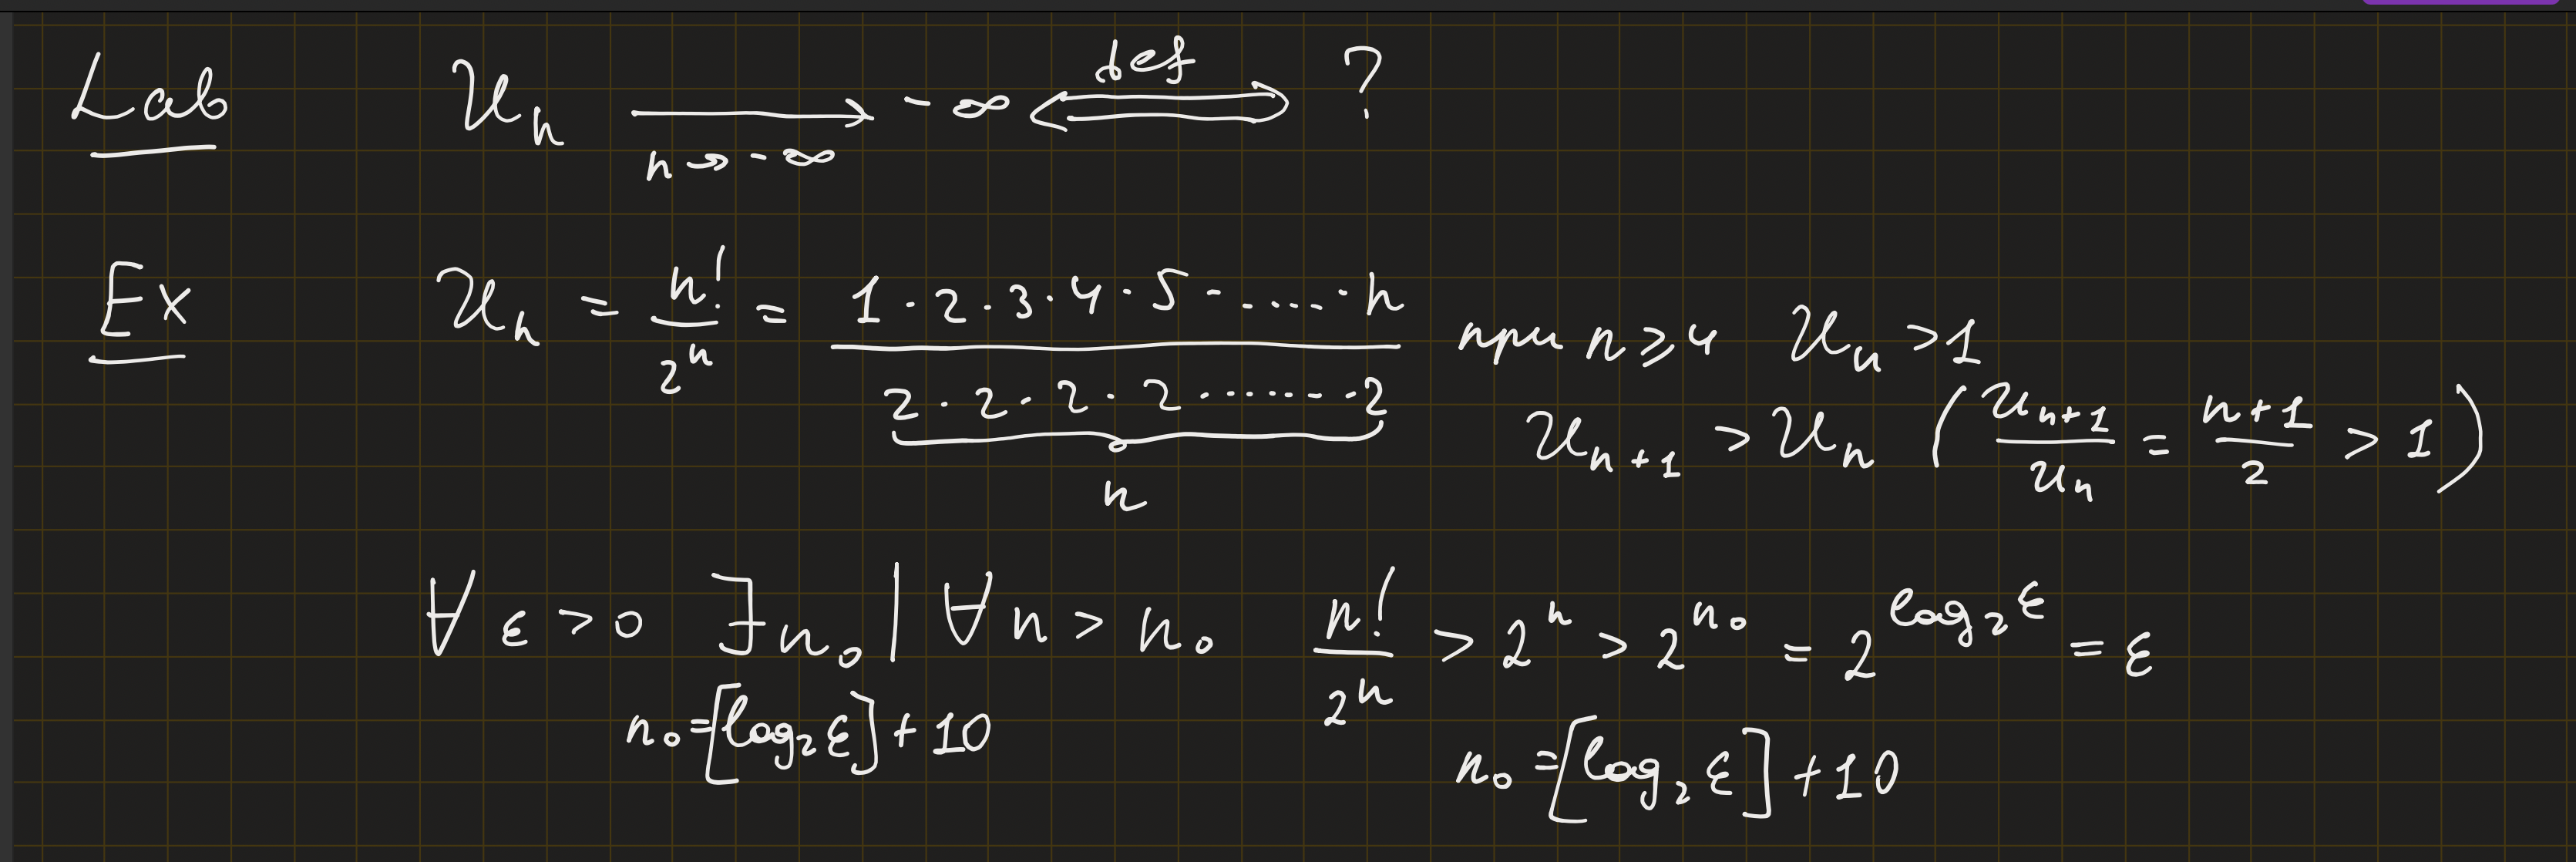 Lab uₙ ⟶ -∞ ⟺ ?
def
n → -∞
Ex uₙ = n!/2ⁿ = (1·2·3·4·5·.....·n)/(2·2·2·2·......·2) при n ⩾ 4 uₙ > 1
n
uₙ₊₁ > uₙ (uₙ₊₁/uₙ = (n+1)/2 > 1)
∀ ε > 0 ∃ n₀ | ∀ n > n₀ n!/2ⁿ > 2ⁿ > 2^n₀ = 2^log₂ε = ε
n₀ = [log₂ε] + 10 n₀ = [log₂ε] + 10